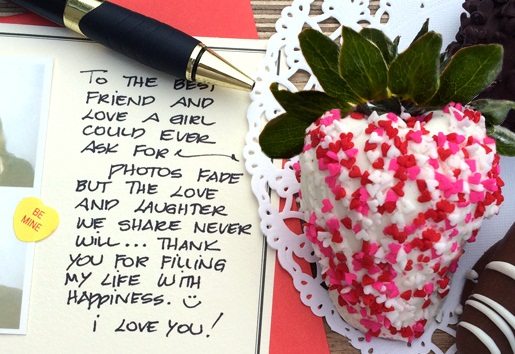 TO THE BEST
FRIEND AND
LOVE A GIRL
COULD EVER
ASK FOR
PHOTOS FADE
BUT THE LOVE
AND LAUGHTER
WE SHARE NEVER
WILL... THANK
YOU FOR FILLING
MY LIFE WITH
HAPPINESS. ☺
i LOVE YOU!
BE
MINE